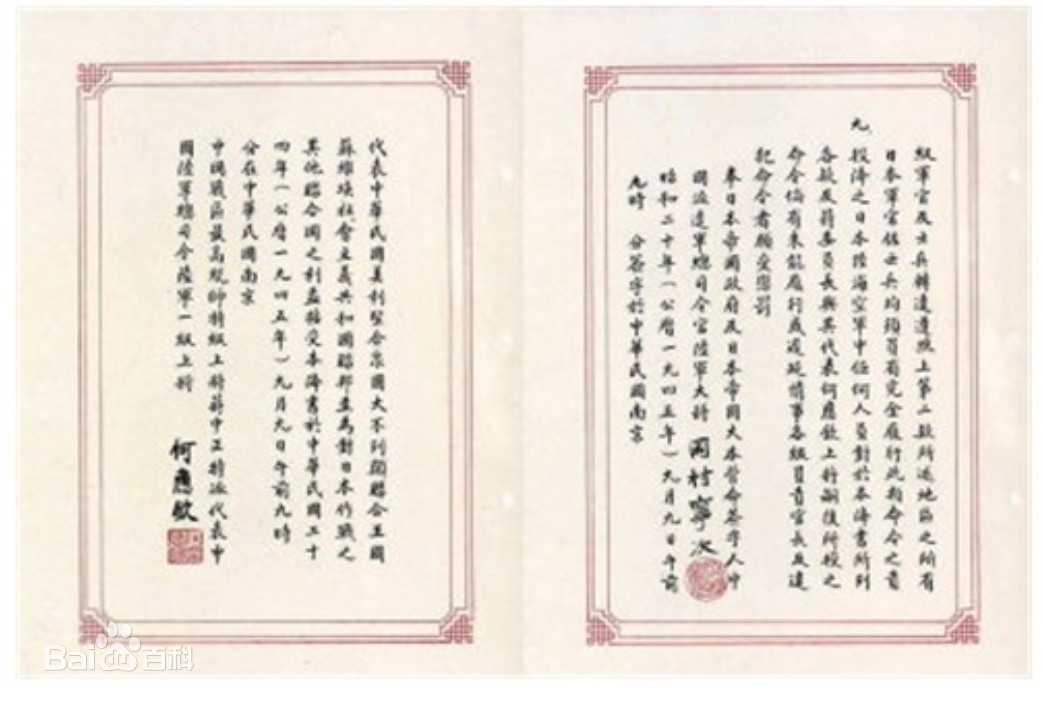 級軍官及士兵轉達遵照上第二款所述地區之所有
日本軍官佐士兵均須負有完全履行此類命令之責
九、投降之日本陸海空軍中任何人員對於本降書所列
各款及蔣委員長與其代表何應欽上將嗣後所授之
命令倘有未能履行或遲延情事各級負責官長及違
犯命令者願受懲罰
奉日本帝國政府及日本帝國大本營命簽字人中
國派遣軍總司令官陸軍大將 岡村寧次
昭和二十年(公曆一九四五年)九月九日午前
九時 分簽字於中華民國南京
代表中華民國美利堅合眾國大不列顛聯合王國
蘇維埃社會主義共和國聯邦並為對日本作戰之
其他聯合國之利益接受本降書於中華民國三十
四年(公曆一九四五年)九月九日午前九時
分在中華民國南京
中國戰區最高統帥特級上將蔣中正特派代表中
國陸軍總司令陸軍一級上將 何應欽
Baidu百科